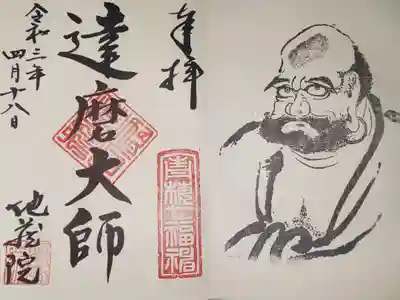 奉拝
達磨大師
令和三年
四月十八日
地蔵院